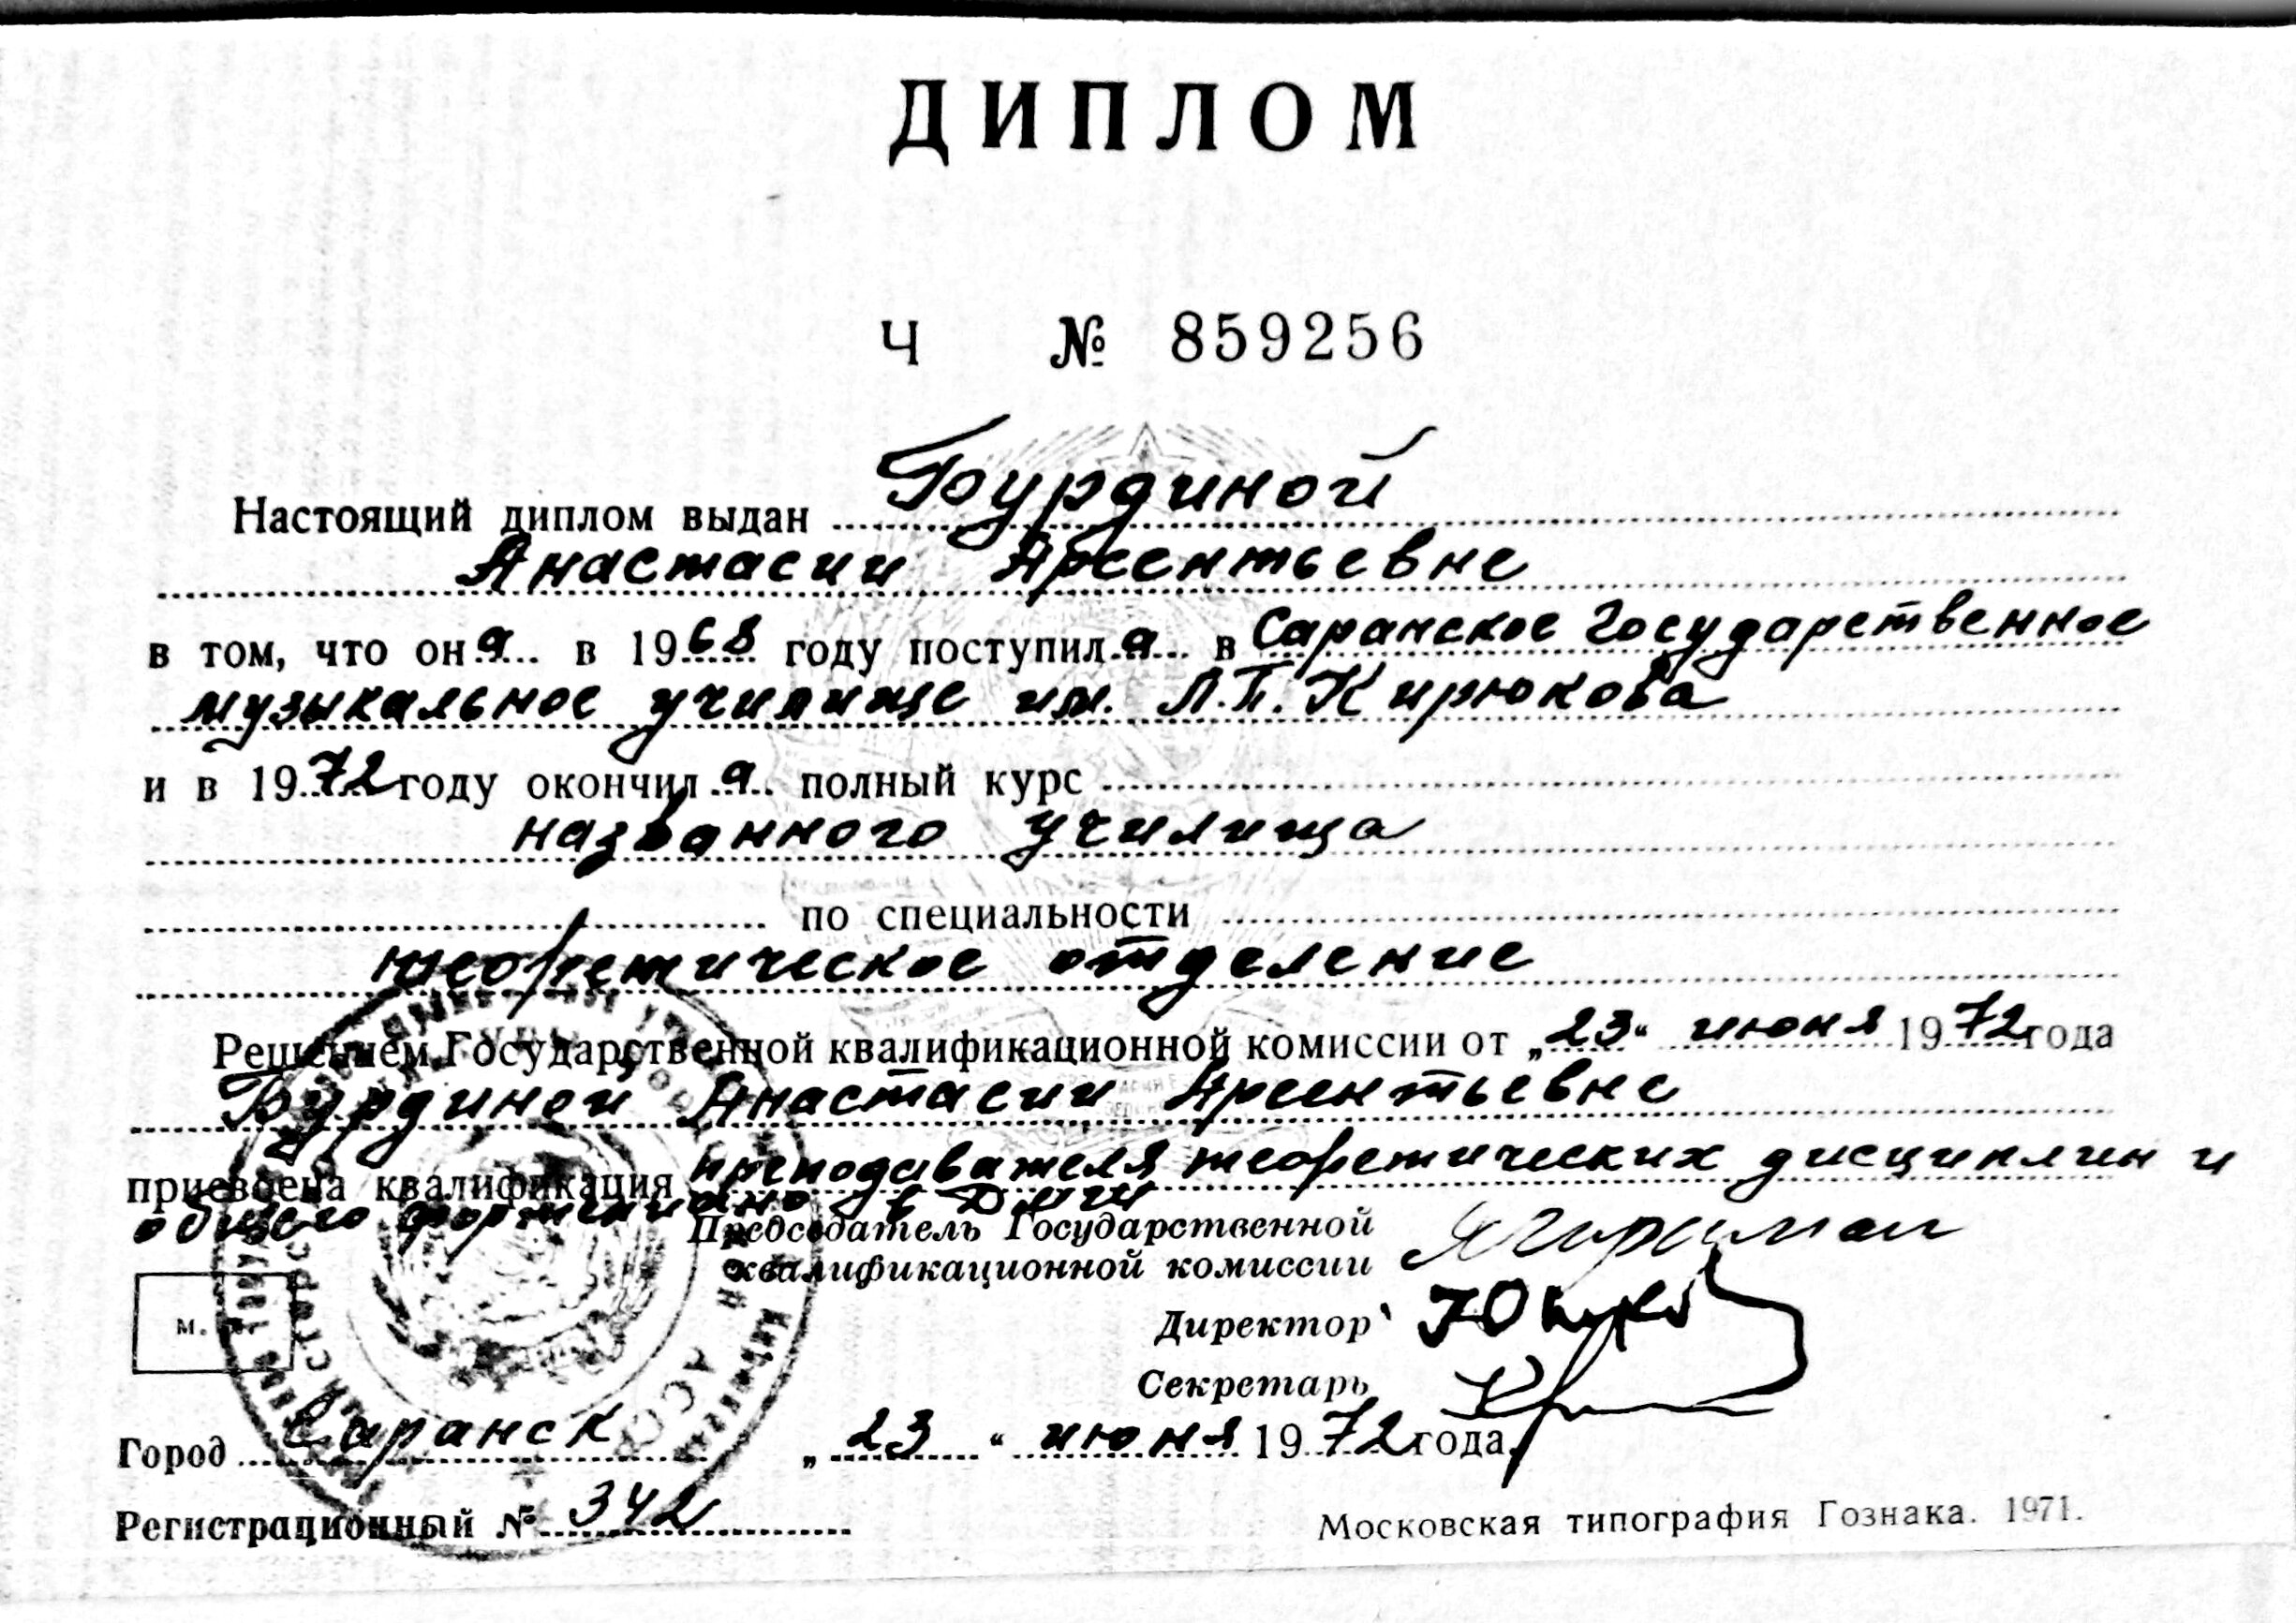 ДИПЛОМ
Ч № 859256
Настоящий диплом выдан Бурдиной
Анастасии Арсентьевне
в том, что она в 1968 году поступила в Саранское Государственное
музыкальное училище им. Л.П. Кирюкова
и в 1972 году окончила полный курс
названного училища
по специальности
теоретическое отделение
Решением Государственной квалификационной комиссии от „23“ июня 1972 года
Бурдиной Анастасии Арсентьевне
присвоена квалификация преподавателя теоретических дисциплин и
общего фортепиано в ДМШ
Председатель Государственной
квалификационной комиссии
Директор
Секретарь
М.
Город Саранск „23“ июня 1972 года
Регистрационный № 342
Московская типография Гознака. 1971.